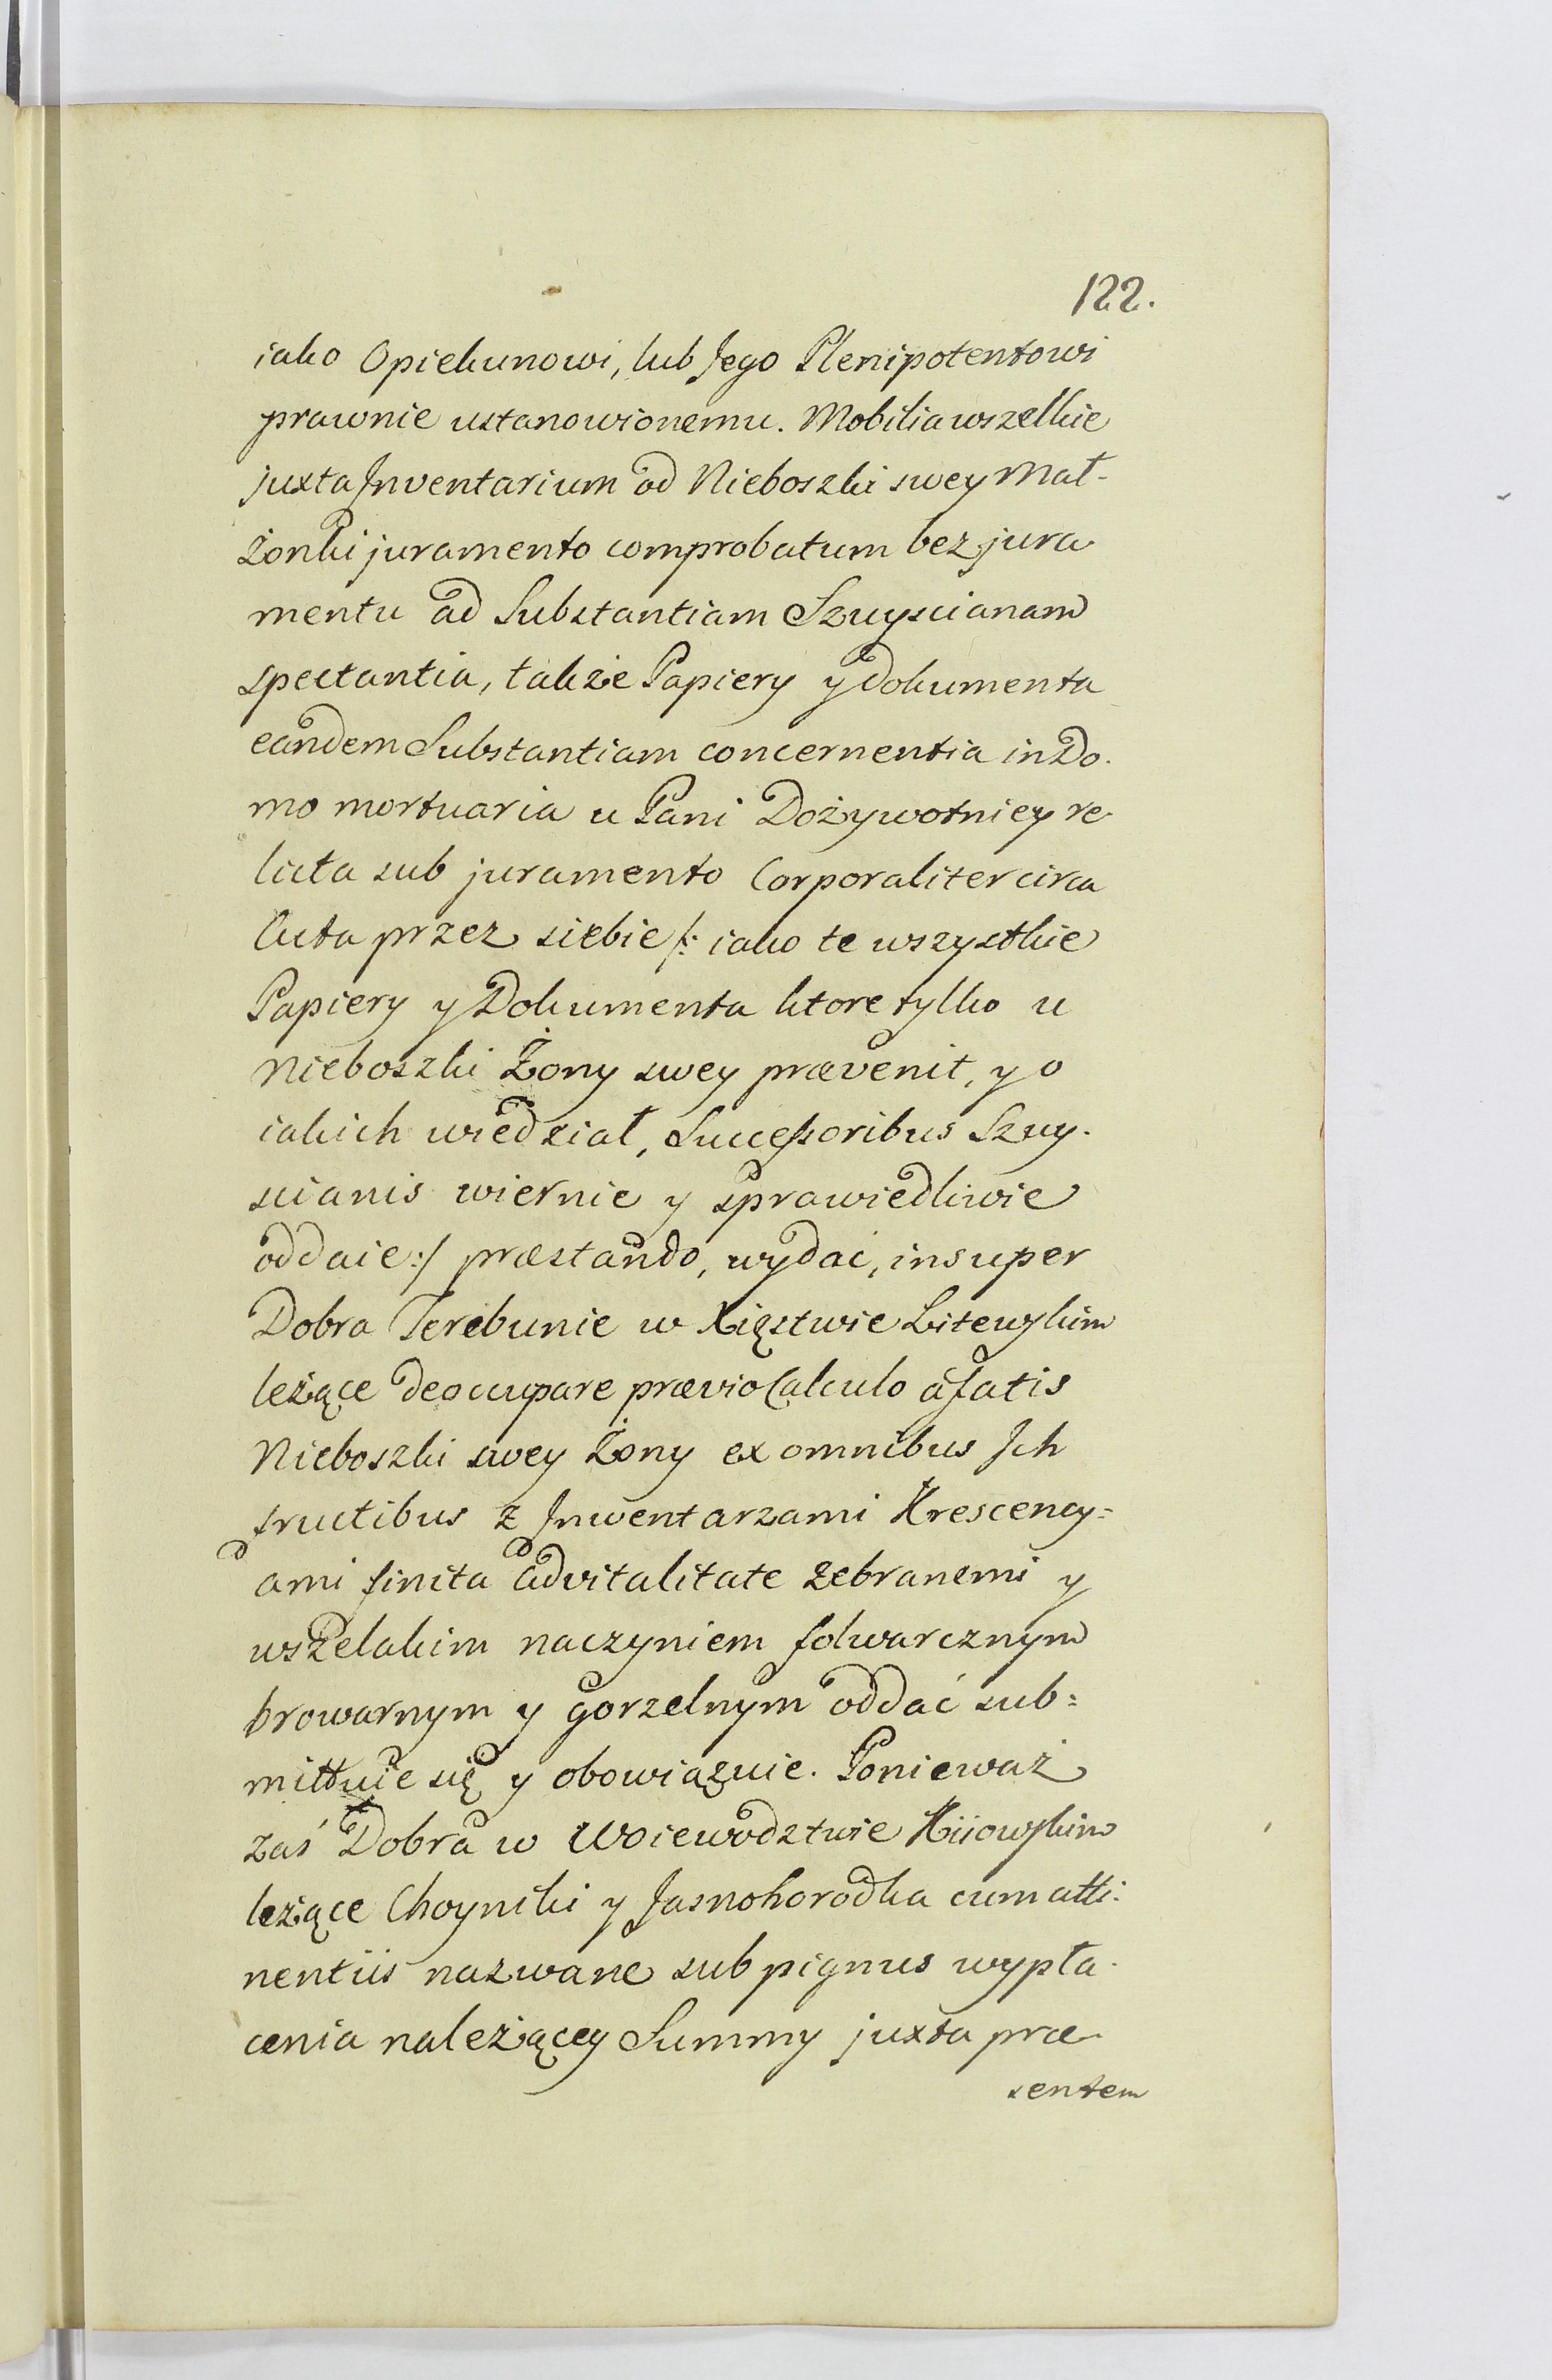 122.
iako Opiekunowi, lub Jego Plenipotentowi
prawnie ustanowionemu. Mobilia wszelkie
juxta Inventarium od Nieboszki swey Mał-
żonki juramento comprobatum bez jura
mentu ad Substantiam Szuyscianam
spectantia, także Papiery y Dokumenta
eandem Substantiam concernentia in Do-
mo mortuaria u Pani Dożywotniey re-
licta sub juramento Corporaliter circa
Acta przez siebie /: iako te wszystkie
Papiery y Dokumenta ktore tylko u
Nieboszki Żony swey prævenit, y o
iakich wiedział, Successoribus Szuy-
scianis wiernie y sprawiedliwie
oddaie :/ præstando, wydać, insuper
Dobra Terebunie w Xięstwie Litewskim
leżące deoccupare prævio Calculo á fatis
Nieboszki swey Żony ex omnibus Ich
fructibus z Inwentarzami Krescency=
ami finita advitalitate zebranemi y
wszelakim naczyniem folwarcznym
browarnym y gorzelnym oddać sub=
mittuie się y obowiązuie. Ponieważ
zaś Dobra w Woiewodztwie Kiiowskim
leżące Choyniki y Jasnohorodka cum atti-
nentiis nazwane sub pignus wypła-
cenia należącey Summy juxta præ-
sentem